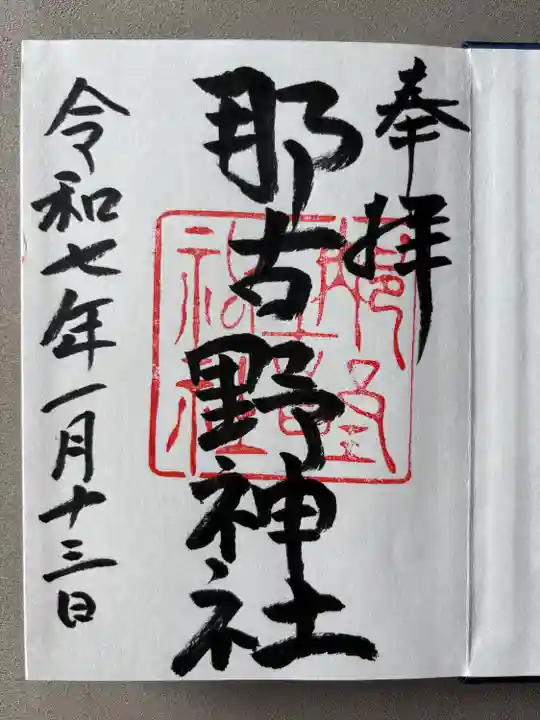 奉拝
那古野神社
令和七年一月十三日